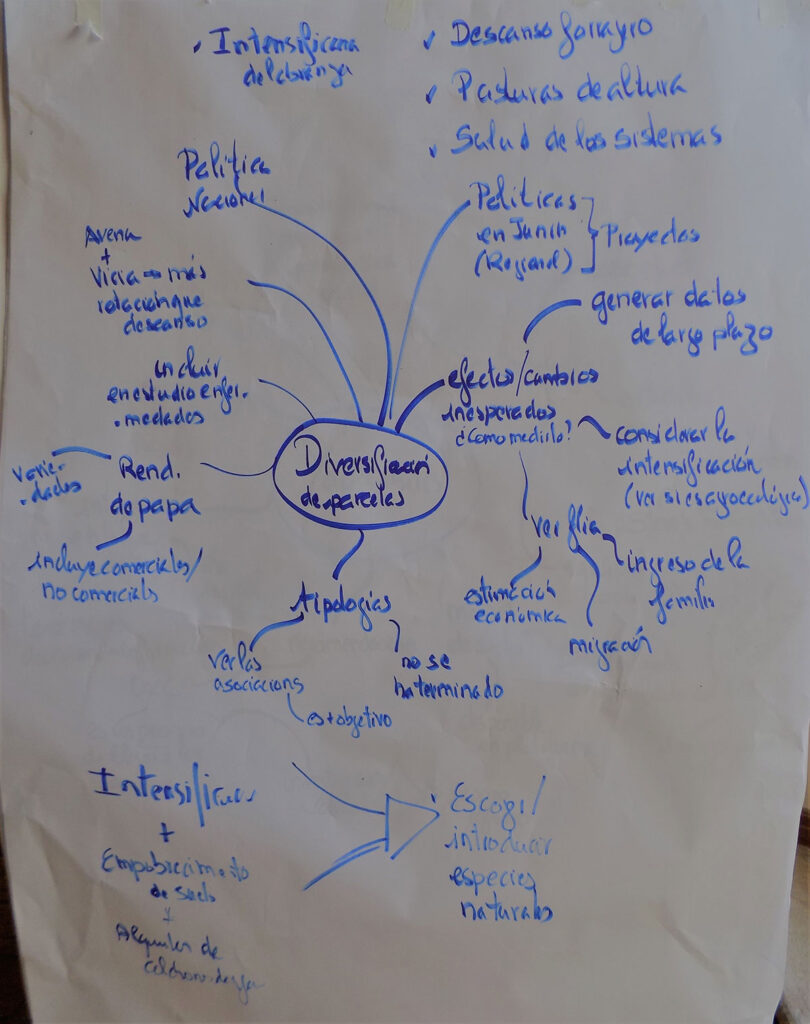 ✓ Intensificena
de labranza
✓ Descanso forrajro
✓ Pasturas de altura
✓ Salud de los sistemas
Politica
Nacional
Politicas
en Junín
(Regional)
Proyectos
Avena
+
Vicia → más
rotación que
descanso
generar datos
de largo plazo
incluir
en estudio enfer.
medades
efectos/cambios
inesperados
¿Cómo medirlo?
considerar la
intensificación
(ver si es agroecológica)
Diversificación
de parcelas
Varie-
dades
Rend.
de papa
incluye comerciales/
no comerciales
ver flia
ingreso de la
familia
estimación
económica
migración
tipologías
ver las
asociacions
est objetivo
no se
ha terminado
Intensificac
+
Empobrecimiento
de suelo
+
Alquiler de
Escogr/
introducir
especies
naturales